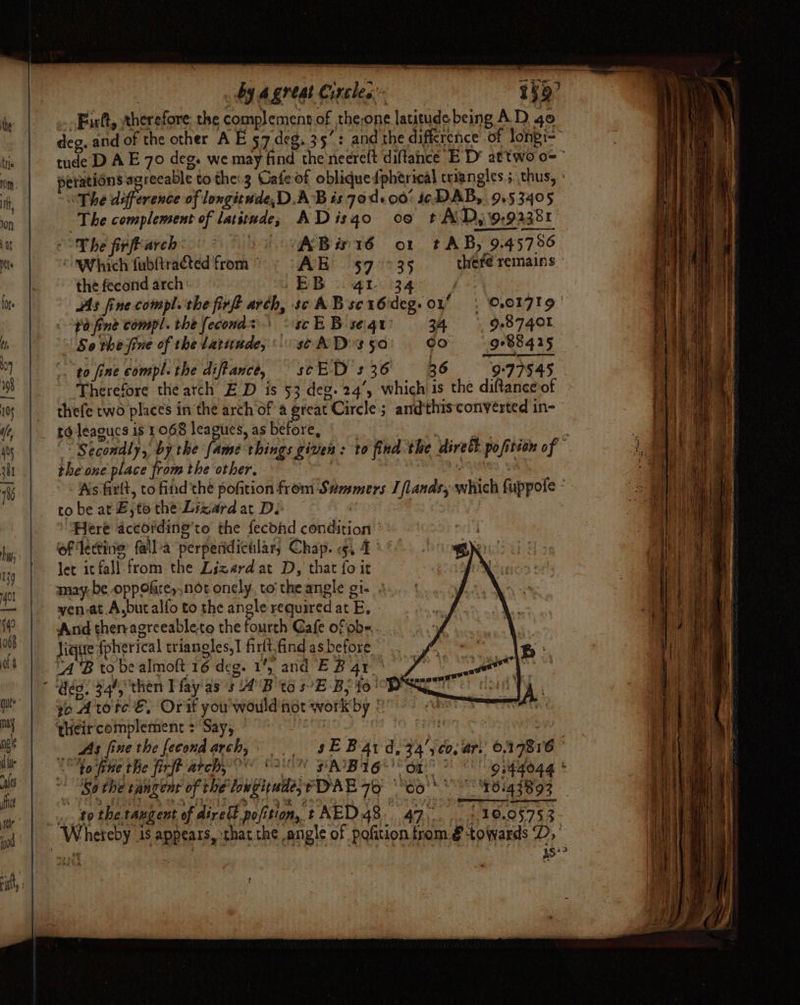 by a great Circles. 159
First, therefore the complement of the one latitude being A D 40
deg. and of the other A E 57 deg. 35′: and the difference of longi-
tude D A E 70 deg. we may find the neerest distance E D at two o-
perations agreeable to the 3 Case of oblique spherical triangles; thus,
The difference of longitude, D A B is 70 d. 00′ sc DAB, 9.53405
The complement of latitude, A D is 40 00 t A D, 9.92381
The first arch A B is 16 01 t A B, 9.45786
Which substracted from A E 57 35 these remains
the second arch E B 41 34
As sine compl. the first arch, sc A B sc 16 deg. 01′ 0.01719
to sine compl. the second: sc E B se 41 34 9.87401
So the sine of the latitude, sc A D s 50 00 9.88425
to sine compl. the distance, sc E D s 36 36 9.77545
Therefore the arch E D is 53 deg. 24′, which is the distance of
these two places in the arch of a great Circle; and this converted in-
to leagues is 1068 leagues, as before,
Secondly, by the same things given: to find the direct position of
the one place from the other.
As first, to find the position from Summers Islands, which suppose
to be at E, to the Lizard at D.
Here according to the second condition
of letting fall a perpendicular, Chap. 5, 4
let it fall from the Lizard at D, that so it
may be opposite, not onely to the angle gi-
ven at A, but also to the angle required at E.
And then agreeable to the fourth Case of ob-
lique spherical triangles, I first find as before
A B to be almost 16 deg. 1′, and E B 41
deg. 34′, then I say as s A B to s E B, so
tc A to tc E. Or if you would not work by
their complement: Say,
As sine the second arch, s E B 41 d. 34′, co. ar. 0.17816
to sine the first arch, s A B 16 01 9.44044
So the tangent of the longitude, t D A E 70 00 10.43893
to the tangent of direct position, t A E D 48 47 10.05753
Whereby is appears, that the angle of position from E towards D,
is
D B A